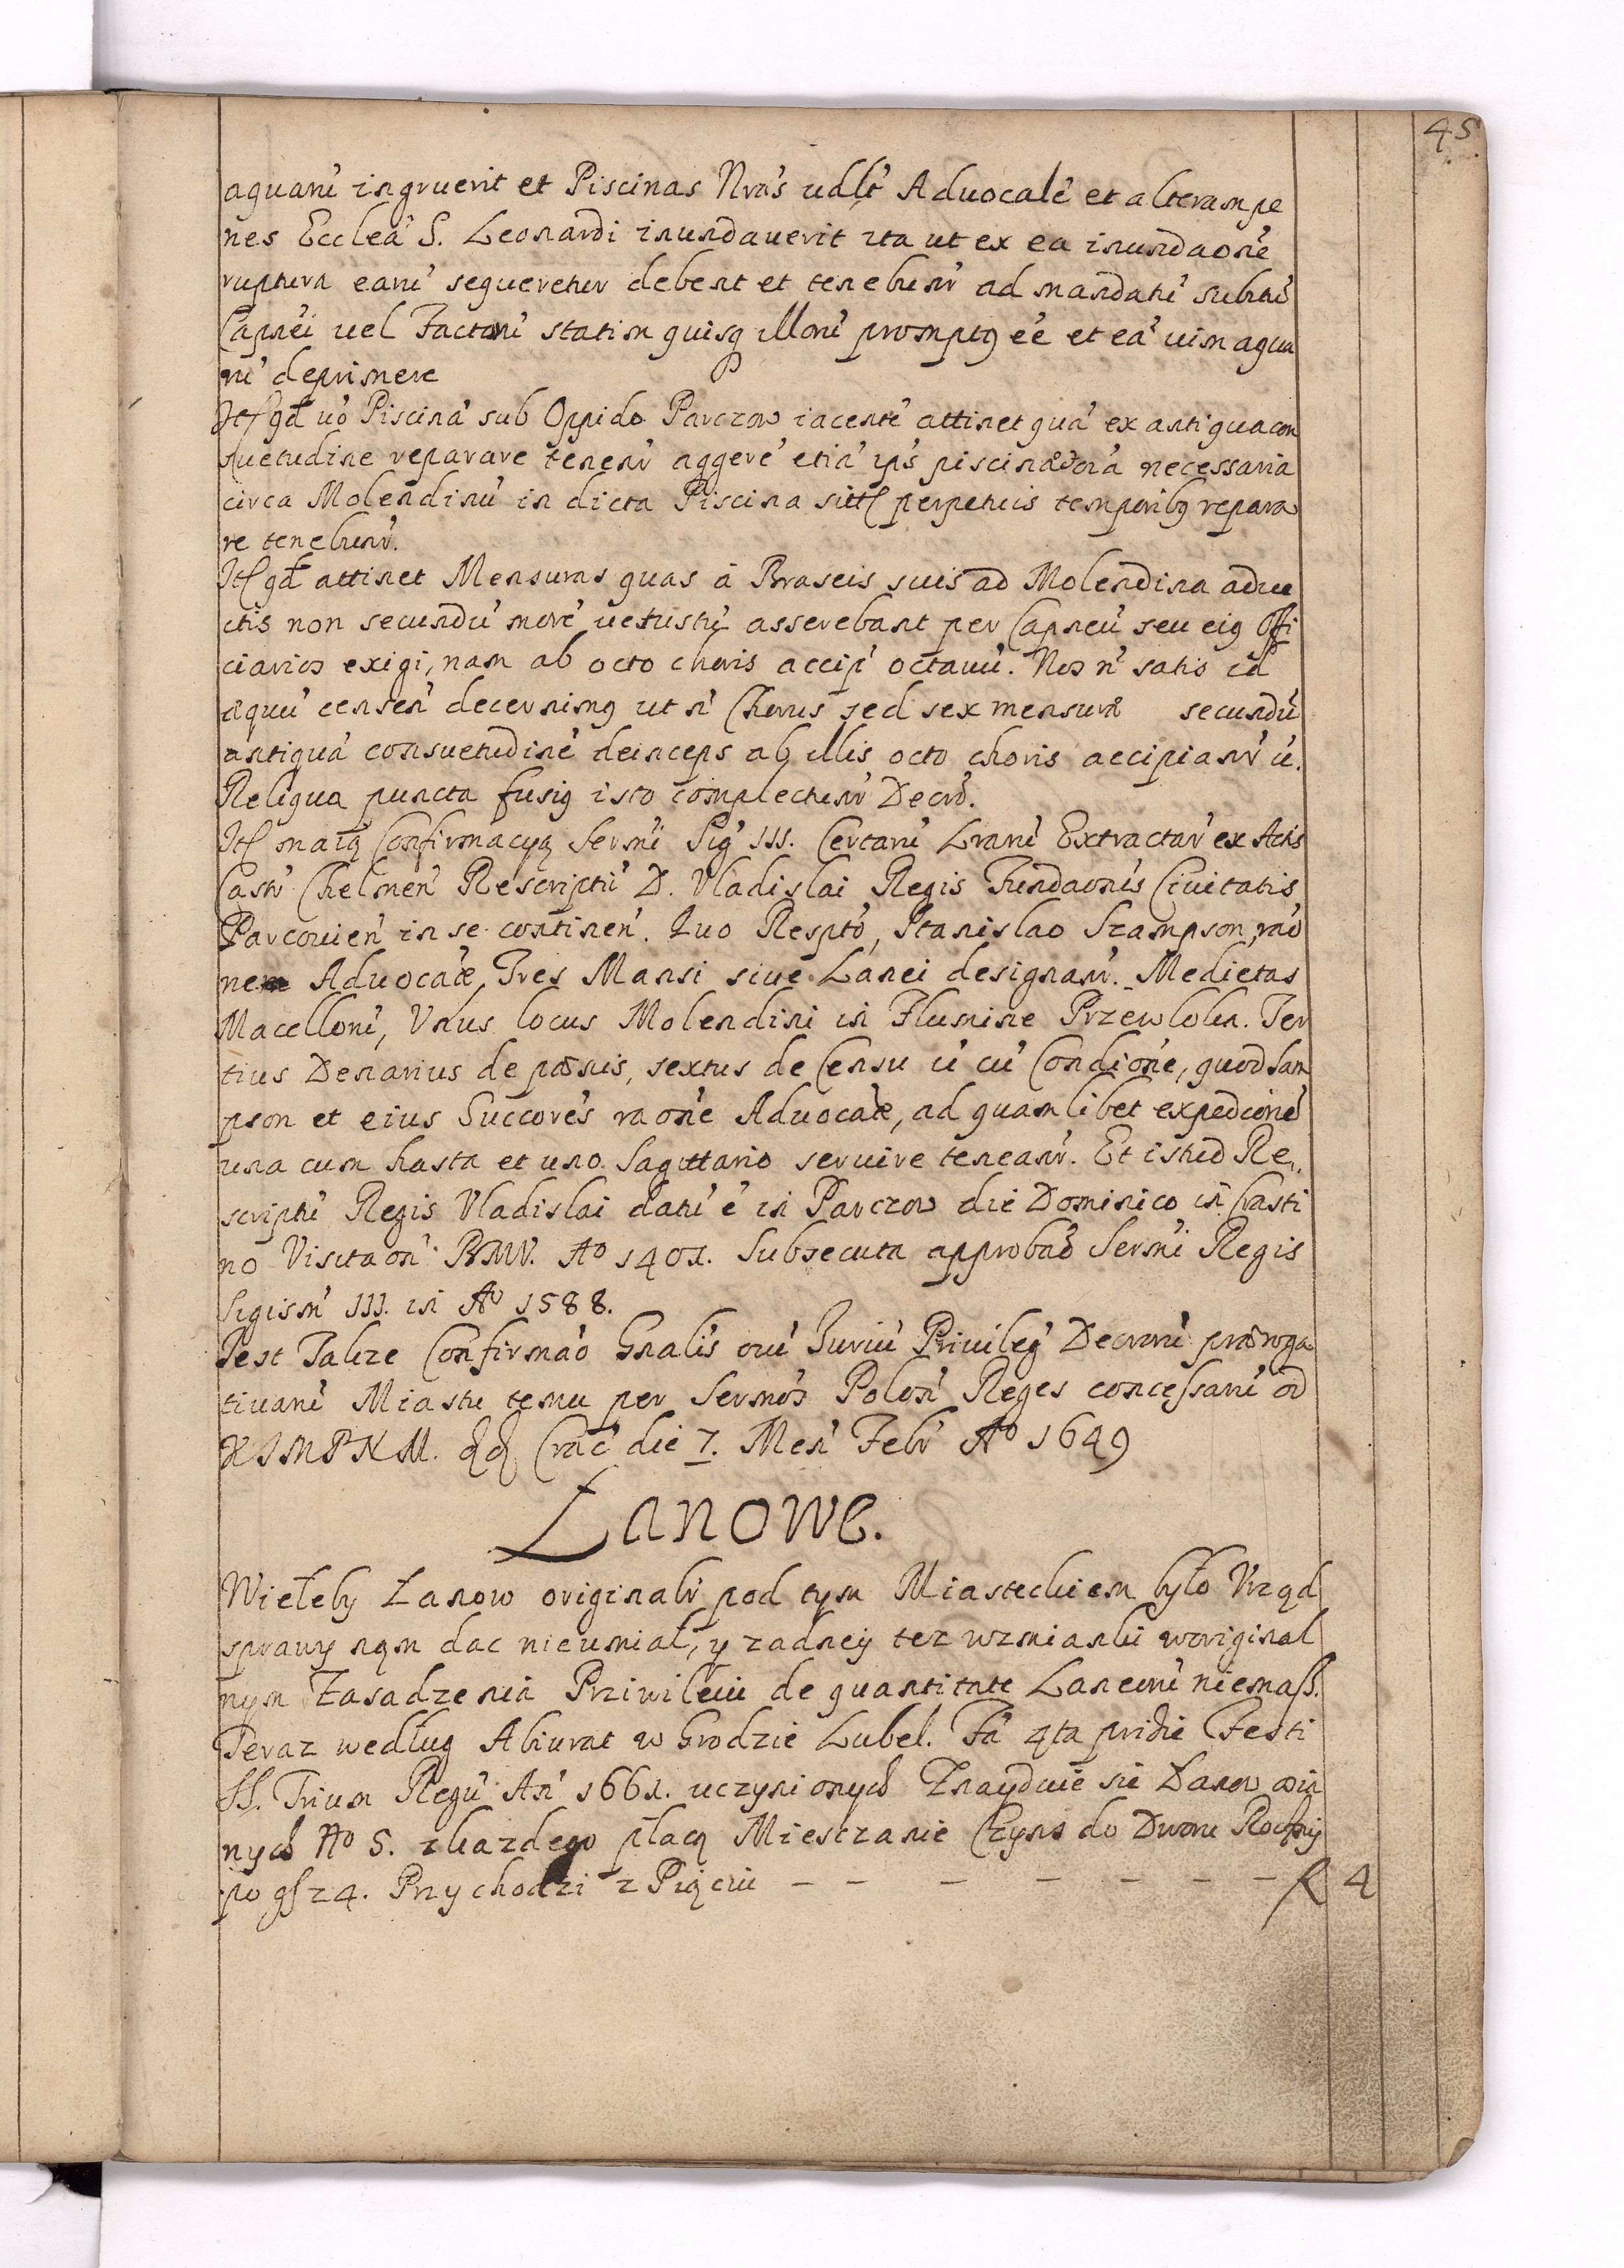 45
aquaru̇ ingruerit et Piscinas Nrȧs udlt' Aduocalė et alteram pe
nes Eccleȧ S. Leonardi inundauerit ita ut ex ea inundaonė
ruptura earu̇ sequeretur debent et tenebunr' ad mandatu̇ subtu̇
Capnei uel Factoru̇ statim quisq illoru̇ promptq ėe et eȧ uim aqua
ru̇ deprimere
Itſ qd uȯ Piscinȧ sub Oppido Parczow iacentė attinet quȧ ex antiqua con
suetudine reparare tenenr' aggerė etiȧ ips' piscinæ foȧ necessaria
circa Molendinu̇ in dicta Piscina sittſ perpetuis temporibq repara
re tenebunr'.
Itſ qd attinet Mensuras quas á Braseis suis ad Molendina adue
ctis non secundu̇ morė uetustu̇ asserebant per Capneu̇ seu eiq Offi
ciarios exigi, nam ab octo choris accipi' octauu̇. Nos n' satis id
æquu̇ censen' decernimq ut n' Chorus sed sex mensuræ secundu̇
antiquȧ consuetudinė deinceps ab illis octo choris accipianr' u̇.
Reliqua puncta fusiq isto complectunr' Decrȯ.
Itſ maią Confirmacyą Sermi Sig' III. Certaru̇ Lraru̇ Extractar' ex Actis
Castr' Chelmen' Rescriptu̇ D. Vladislai Regis Fundaonis Ciuitatis
Parcouien' in se continen'. Quo Resptȯ, Stanislao Szampson raȯ
nem Aduocaæ, Tres Mansi siue Lanei designanr'. Medietas
Macelloru̇, Vnus locus Molendini in Flumine Przewloka. Ter
tius Denarius de pœnis, sextus de Censu u̇ cu̇ Condionė, quod Sam
pson et eius Succorės raonė Aduocaæ, ad quamlibet expedcionė
una cum hasta et uno Sagittario seruire teneanr'. Et istud Re,,
scriptu̇ Regis Vladislai datu̇ ė in Parczow die Dominico in Crasti
no Visitaon' BMV. Ao 1401. Subsecuta approbaȯ Sermi Regis
Sigism' III. in Ao 1588.
Jest Takze Confirmaȯ Gnalis oiu̇ Juriu̇ Priuileg' Decroru̇ præroga
tiuaru̇ Miastu temu per Sermos Polon' Reges concessaru̇ od
K J M P N M. Crac' die 7. Men' Febr' Ao 1649
Łanowe.
Wieleby Łanow originalr' pod tym Miasteckiem było Vrząd
sprawy nąm dac nieumiał, y zadney tez wzmianki woriginal
nym Zasadzenia Priwileiu de quantitate Laneoru̇ niemaſz.
Teraz według Abiurat w Grodzie Lubel. Fȧ 4ta pridie Festi
SS. Trium Regu̇ An' 1661. uczynionych Znayduie sie Łanow osia
nych No 5. zkazdego płacą Miesczanie Czynsz do Dworu Roczny
po gſz 4. Przychodzi z Piąciu – – – – – – – f 4